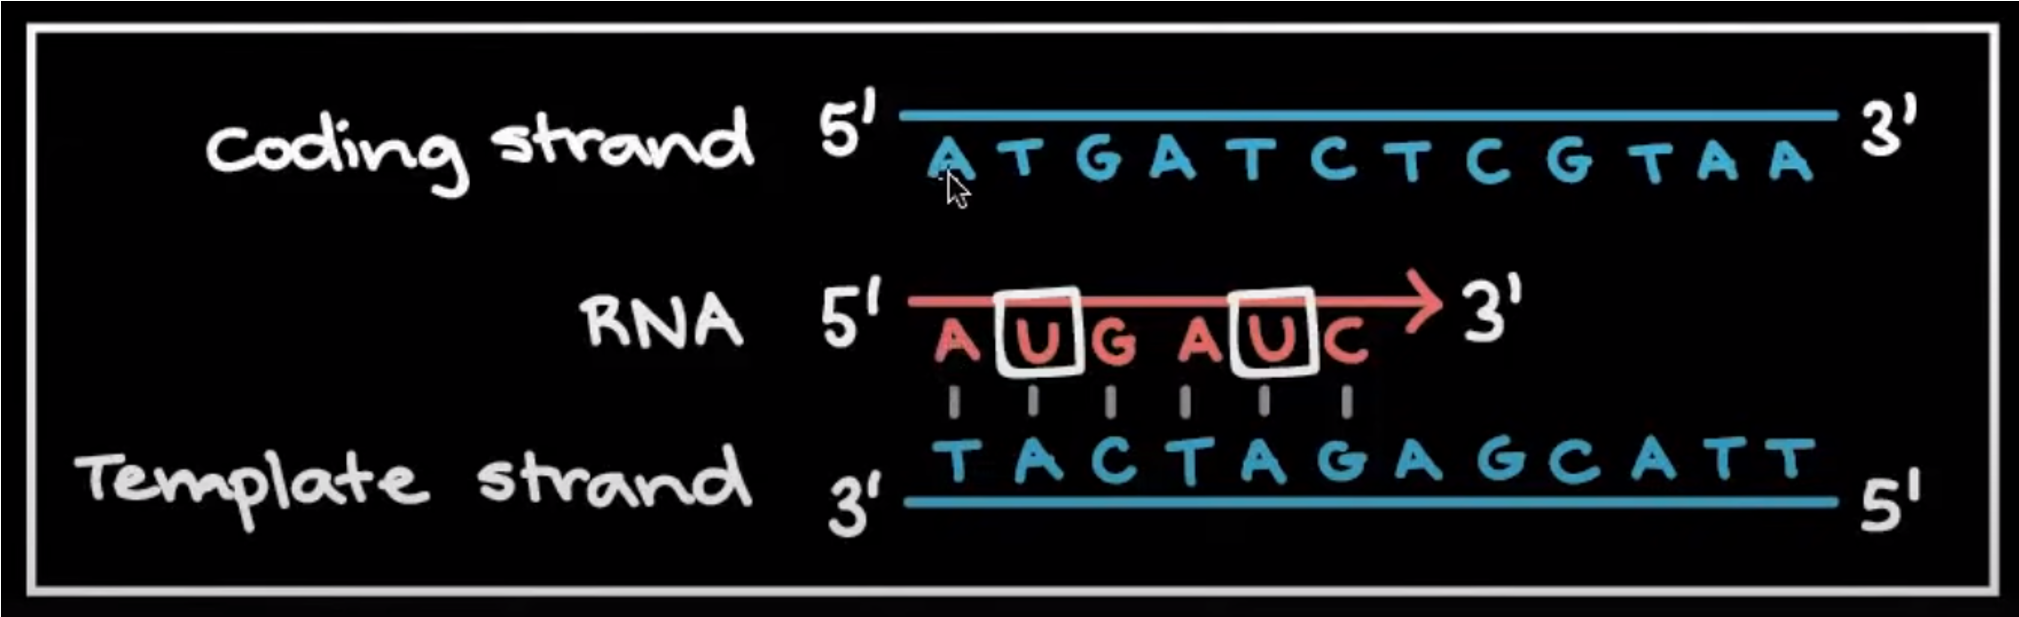 Coding strand 5' ATGATCTCGTAA 3'
RNA 5' AUGAUC 3'
Template strand 3' TACTAGAGCATT 5'